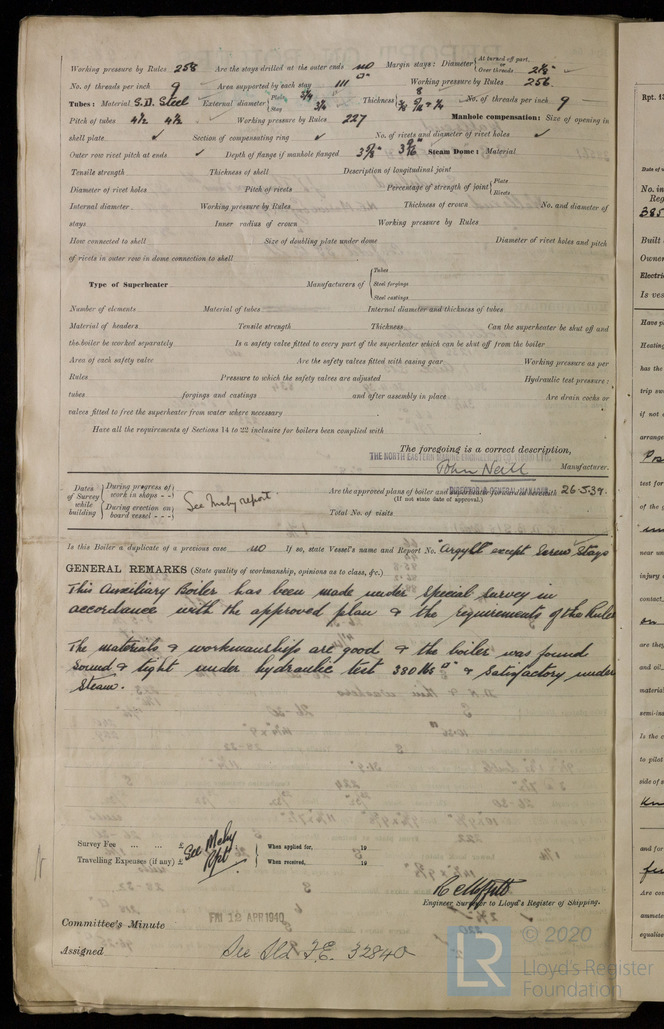 Working pressure by Rules 258 Are the stays drilled at the outer ends no Margin stays: Diameter { At turned off part, or Over threads
No. of threads per inch 9 Area supported by each stay 111 □" Working pressure by Rules 256
Tubes: Material S.D. Steel External diameter { Plain Stay 3¼ Thickness No. of threads per inch 9
Pitch of tubes 4½ 4½ Working pressure by Rules 227 Manhole compensation: Size of opening in
shell plate ✓ Section of compensating ring ✓ No. of rivets and diameter of rivet holes ✓
Outer row rivet pitch at ends ✓ Depth of flange if manhole flanged Steam Dome: Material
Tensile strength Thickness of shell Description of longitudinal joint
Diameter of rivet holes Pitch of rivets Percentage of strength of joint { Plate Rivets
Internal diameter Working pressure by Rules Thickness of crown No. and diameter of
stays Inner radius of crown Working pressure by Rules
How connected to shell Size of doubling plate under dome Diameter of rivet holes and pitch
of rivets in outer row in dome connection to shell
Type of Superheater Manufacturers of { Tubes Steel forgings Steel castings
Number of elements Material of tubes Internal diameter and thickness of tubes
Material of headers Tensile strength Thickness Can the superheater be shut off and
the boiler be worked separately Is a safety valve fitted to every part of the superheater which can be shut off from the boiler
Area of each safety valve Are the safety valves fitted with easing gear Working pressure as per
Rules Pressure to which the safety valves are adjusted Hydraulic test pressure:
tubes forgings and castings and after assembly in place Are drain cocks or
valves fitted to free the superheater from water where necessary
Have all the requirements of Sections 14 to 22 inclusive for boilers been complied with
The foregoing is a correct description,
THE NORTH EASTERN MARINE ENGINEERING CO.
John Neill Manufacturer.
Dates of Survey while building { During progress of work in shops - - During erection on board vessel - - - } See Mchy report. Are the approved plans of boiler and superheater forwarded herewith 26-5-39.
(If not state date of approval.)
DIRECTOR & GENERAL MANAGER
Total No. of visits
Is this Boiler a duplicate of a previous case no If so, state Vessel's name and Report No. Argyll except Screw Stays
GENERAL REMARKS (State quality of workmanship, opinions as to class, &c.)
This Auxiliary Boiler has been made under special survey in
accordance with the approved plan & the requirements of the Rules
The materials & workmanship are good & the boiler was found
sound & tight under hydraulic test 380 lbs □" & satisfactory under
steam.
Survey Fee ... ... £ See Mchy Rpt. When applied for, 19
Travelling Expenses (if any) £ When received, 19
Engineer Surveyor to Lloyd's Register of Shipping.
Committee's Minute FRI 19 APR 1940
Assigned See Sld F.E. 32840
© 2020
LR Lloyd's Register
Foundation
Rpt. 13
Date of w
No. in
Reg
385
Built
Owner
Electric
Is ves
Have p
Heating
has the
trip sw
if not
arrange
Pos
test for
of the g
near un
injury
contact,
on
are they
and oil
material
semi-ins
Is the c
to pilot
side of s
and for
Are con
ammete
equalise